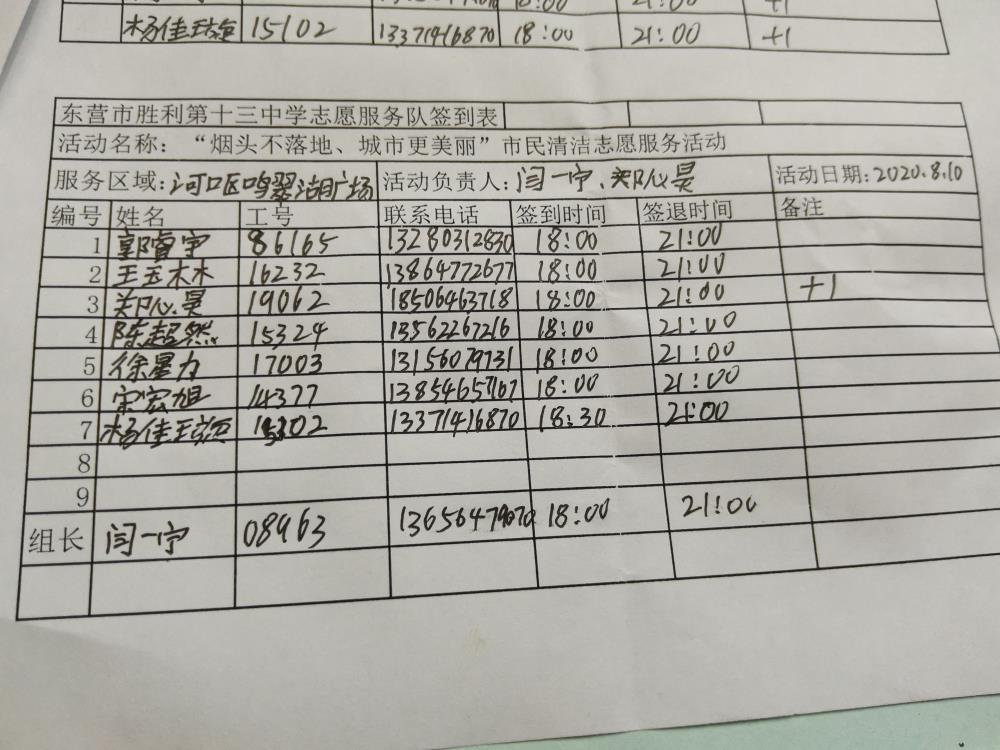 18:00 21:00 +1
15102 13371416870 18:00 21:00 +1
东营市胜利第十三中学志愿服务队签到表
活动名称：“烟头不落地、城市更美丽”市民清洁志愿服务活动
服务区域:河口区鸣翠湖广场 活动负责人:闫一宁、郑心昊 活动日期:2020.8.10
编号 姓名 工号 联系电话 签到时间 签退时间 备注
1 郭睿宇 86165 13280312830 18:00 21:00
2 王玉林 16232 13864772677 18:00 21:00
3 郑心昊 19062 18506463718 18:00 21:00 +1
4 陈超然 15324 13562267216 18:00 21:00
5 徐星力 17003 13156079731 18:00 21:00
6 宋宏旭 14377 13854657167 18:00 21:00
7 13371416870 18:30 21:00
8
9
组长 闫一宁 08963 13656479070 18:00 21:00